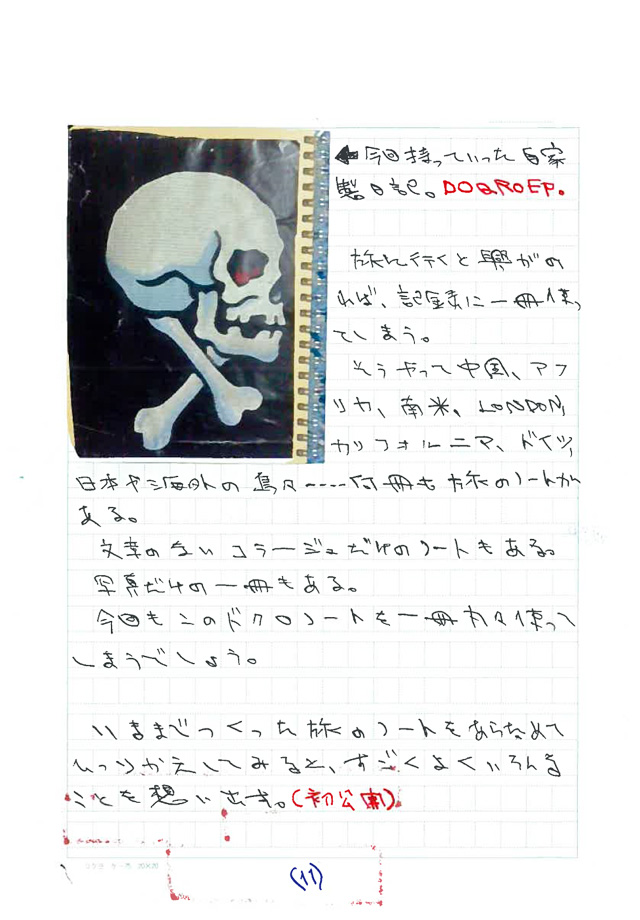 ←今回持っていった自家
製日記。DOQROEP。
旅に行くと興がの
れば、記録に一冊使っ
てしまう。
そうやって中国、アフ
リカ、南米、LONDON、
カリフォルニア、ドイツ、
日本や海外の島々……何冊も旅のノートが
ある。
文章のないコラージュだけのノートもある。
写真だけの一冊もある。
今回もこのドクロノートを一冊丸々使って
しまうでしょう。
いままでつくった旅のノートをあらためて
ひっくりかえしてみると、すごくよくいろんな
ことを想い出す。(初公開)
コクヨ ケ-75 20×20
(11)